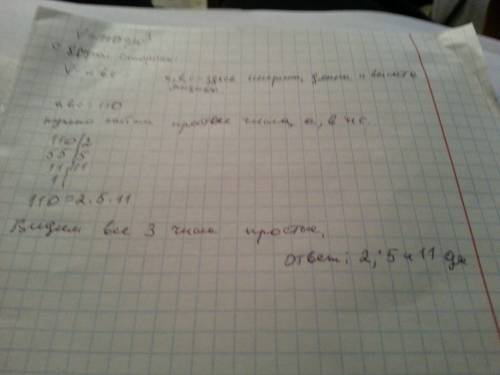 V = 110 дм³
с другой стороны
V = abc a, b, c - здесь ширина, длина и высота
abc = 110
нужно найти простые числа a, b и c.
110|2
55|5
11|11
1|
110 = 2·5·11
Видим все 3 числа простые.
Ответ: 2, 5 и 11 дм